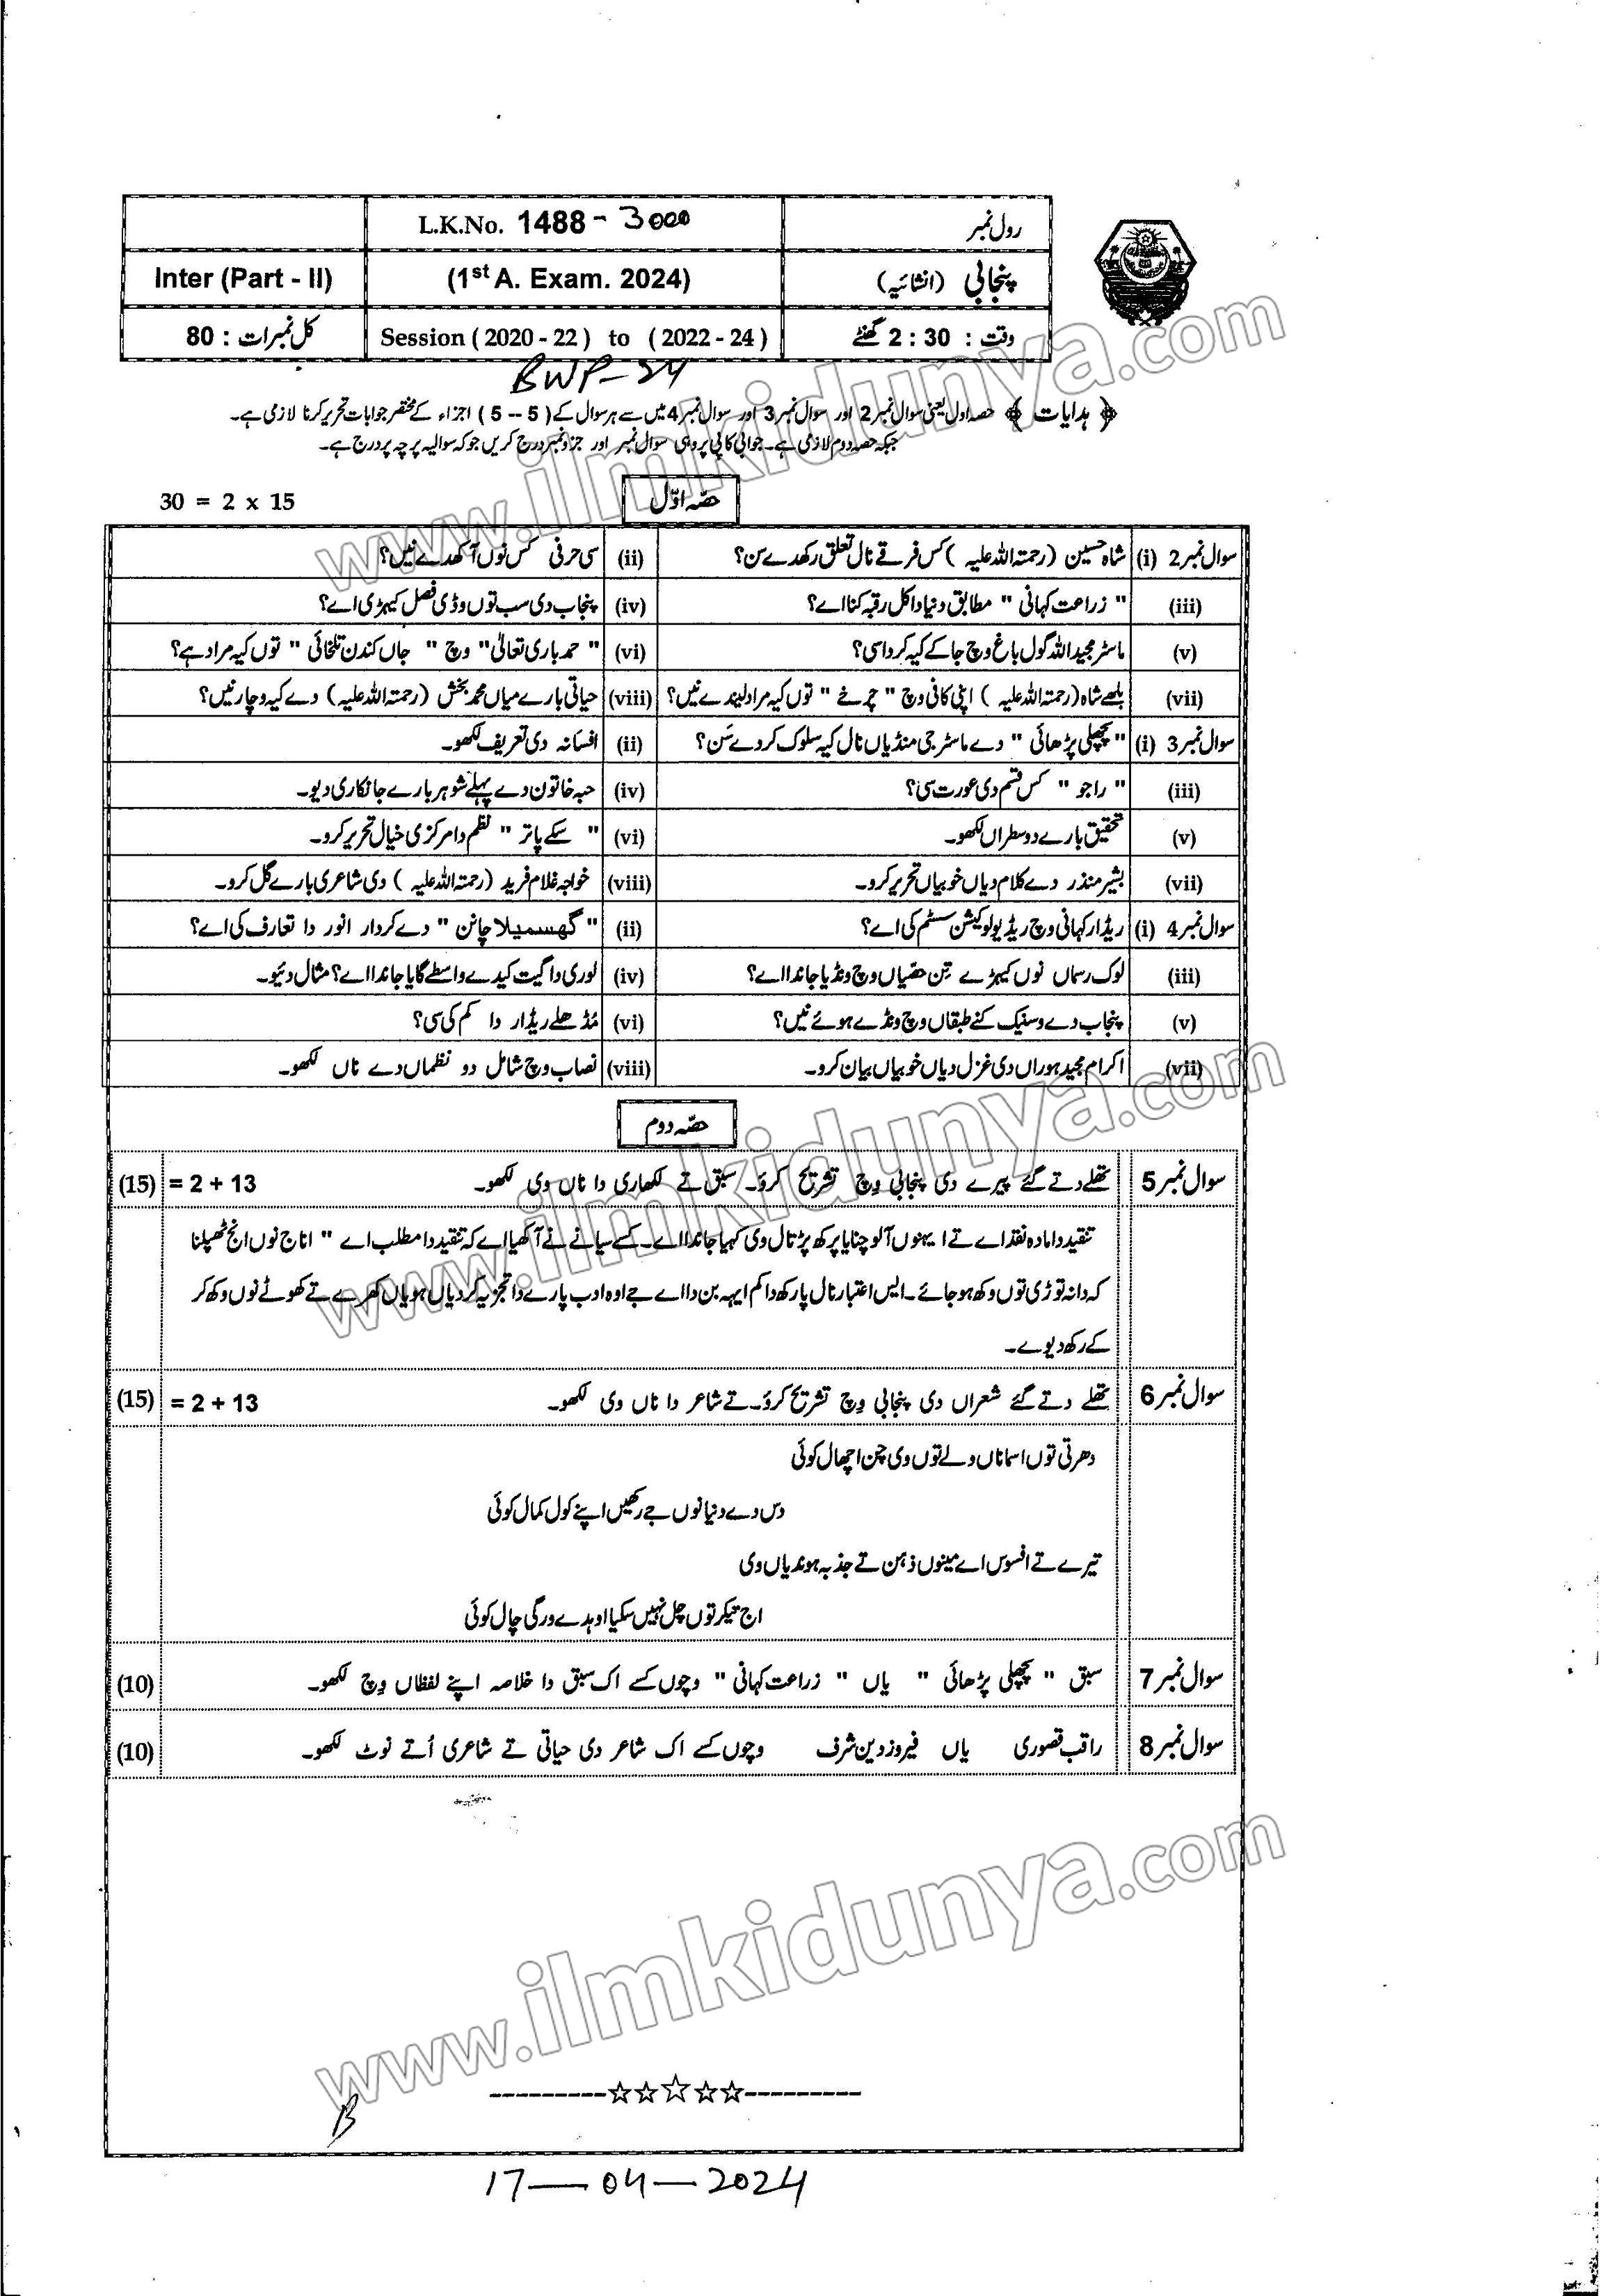 L.K.No. 1488 - 3000
رول نمبر
Inter (Part - II)
(1st A. Exam. 2024)
پنجابی (انشائیہ)
کل نمبرات : 80
Session ( 2020 - 22 ) to ( 2022 - 24 )
وقت : 2 : 30 گھنٹے
BWP-24
﴿ ہدایات ﴾ حصہ اول یعنی سوال نمبر 2 اور سوال نمبر 3 اور سوال نمبر 4 میں سے ہر سوال کے ( 5 -- 5 ) اجزاء کے مختصر جوابات تحریر کرنا لازمی ہے۔
جبکہ حصہ دوم لازمی ہے۔ جوابی کاپی پر وہی سوال نمبر اور جزو نمبر درج کریں جو کہ سوالیہ پرچہ پر درج ہے۔
حصّہ اوّل
30 = 2 x 15
سوال نمبر 2 (i) شاہ حسین (رحمتہ اللہ علیہ) کس فرقے نال تعلق رکھدے سن؟
(ii) سی حرفی کس نوں آکھدے نیں؟
(iii) " زراعت کہانی " مطابق دنیا دا کل رقبہ کنا اے؟
(iv) پنجاب دی سب توں وڈی فصل کیہڑی اے؟
(v) ماسٹر مجید اللہ گول باغ وچ جا کے کیہ کردا سی؟
(vi) " حمد باری تعالیٰ" وچ " جاں کندن تلخائی " توں کیہ مراد ہے؟
(vii) بلھے شاہ (رحمتہ اللہ علیہ ) اپنی کافی وچ " چرخے " توں کیہ مراد لیندے نیں؟
(viii) حیاتی بارے میاں محمد بخش (رحمتہ اللہ علیہ) دے کیہ وچار نیں؟
سوال نمبر 3 (i) " پچھلی پڑھائی " دے ماسٹر جی منڈیاں نال کیہ سلوک کردے سَن؟
(ii) افسانہ دی تعریف لکھو۔
(iii) " راجو " کس قسم دی عورت سی؟
(iv) حبہ خاتون دے پہلے شوہر بارے جانکاری دیو۔
(v) تحقیق بارے دو سطراں لکھو۔
(vi) " سکے پاتر " نظم دا مرکزی خیال تحریر کرو۔
(vii) بشیر منذر دے کلام دیاں خوبیاں تحریر کرو۔
(viii) خواجہ غلام فرید (رحمتہ اللہ علیہ ) دی شاعری بارے گل کرو۔
سوال نمبر 4 (i) ریڈار کہانی وچ ریڈیو لوکیشن سسٹم کی اے؟
(ii) " گھسمیلا چانن " دے کردار انور دا تعارف کی اے؟
(iii) لوک رسماں نوں کیہڑے تِن حصّیاں وچ ونڈیا جاندا اے؟
(iv) لوری دا گیت کیدے واسطے گایا جاندا اے؟ مثال دئیو۔
(v) پنجاب دے وسنیک کنے طبقاں وچ ونڈے ہوئے نیں؟
(vi) مُڈھلے ریڈار دا کم کی سی؟
(vii) اکرام مجید ہوراں دی غزل دیاں خوبیاں بیان کرو۔
(viii) نصاب وچ شامل دو نظماں دے ناں لکھو۔
حصّہ دوم
سوال نمبر 5 تھلے دتے گئے پیرے دی پنجابی وچ تشریح کرؤ۔ سبق تے لکھاری دا ناں وی لکھو۔ (15) = 2 + 13
تنقید دا مادہ نقد اے تے ایہنوں آلوچنا یا پرکھ پڑتال وی کہیا جاندا اے۔ کسے سیانے نے آکھیا اے کہ تنقید دا مطلب اے " اناج نوں انج ٹھپلنا
کہ دانہ توڑی توں وکھ ہو جائے۔ ایس اعتبار نال پارکھ دا کم ایہہ بن دا اے جے اوہ ادب پارے دا تجزیہ کردیاں ہویاں کھرے تے کھوٹے نوں وکھ کر
کے رکھ دیوے۔
سوال نمبر 6 تھلے دتے گئے شعراں دی پنجابی وچ تشریح کرؤ۔ تے شاعر دا ناں وی لکھو۔ (15) = 2 + 13
دھرتی توں اسماناں ولے توں وی چن اچھال کوئی
دس دے دنیا نوں جے رکھیں اپنے کول کمال کوئی
تیرے تے افسوس اے مینوں ذہن تے جذبہ ہوندیاں وی
اج تیکر توں چل نہیں سکیا اوہدے ورگی چال کوئی
سوال نمبر 7 سبق " پچھلی پڑھائی " یاں " زراعت کہانی " وچوں کسے اک سبق دا خلاصہ اپنے لفظاں وچ لکھو۔ (10)
سوال نمبر 8 راقب قصوری یاں فیروز دین شرف وچوں کسے اک شاعر دی حیاتی تے شاعری اُتے نوٹ لکھو۔ (10)
---------☆☆☆☆☆---------
B
17-04-2024
www.ilmkidunya.com
www.ilmkidunya.com
www.ilmkidunya.com